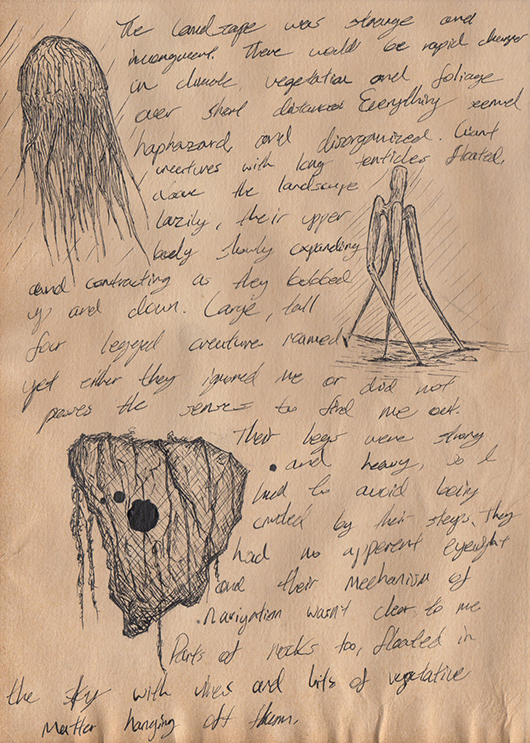 The landscape was strange and
incongruent. There would be rapid changes
in climate, vegetation and foliage
over short distances. Everything seemed
haphazard, and disorganized. Giant
creatures with long tenticles floated
above the landscape
lazily, their upper
body slowly expanding
and contracting as they bobbed
up and down. Large, tall
four legged creature roamed
yet either they ignored me or did not
posses the senses to find me out.
Their legs were strong
and heavy, so I
had to avoid being
crushed by their steps. They
had no apparent eyesight
and their mechanism of
navigation wasn't clear to me.
Parts of rocks too, floated in
the sky with vines and bits of vegetative
matter hanging off them.